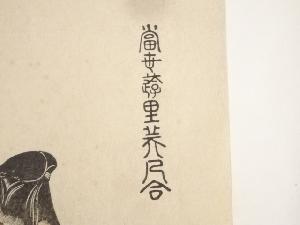 當世遊里美人合